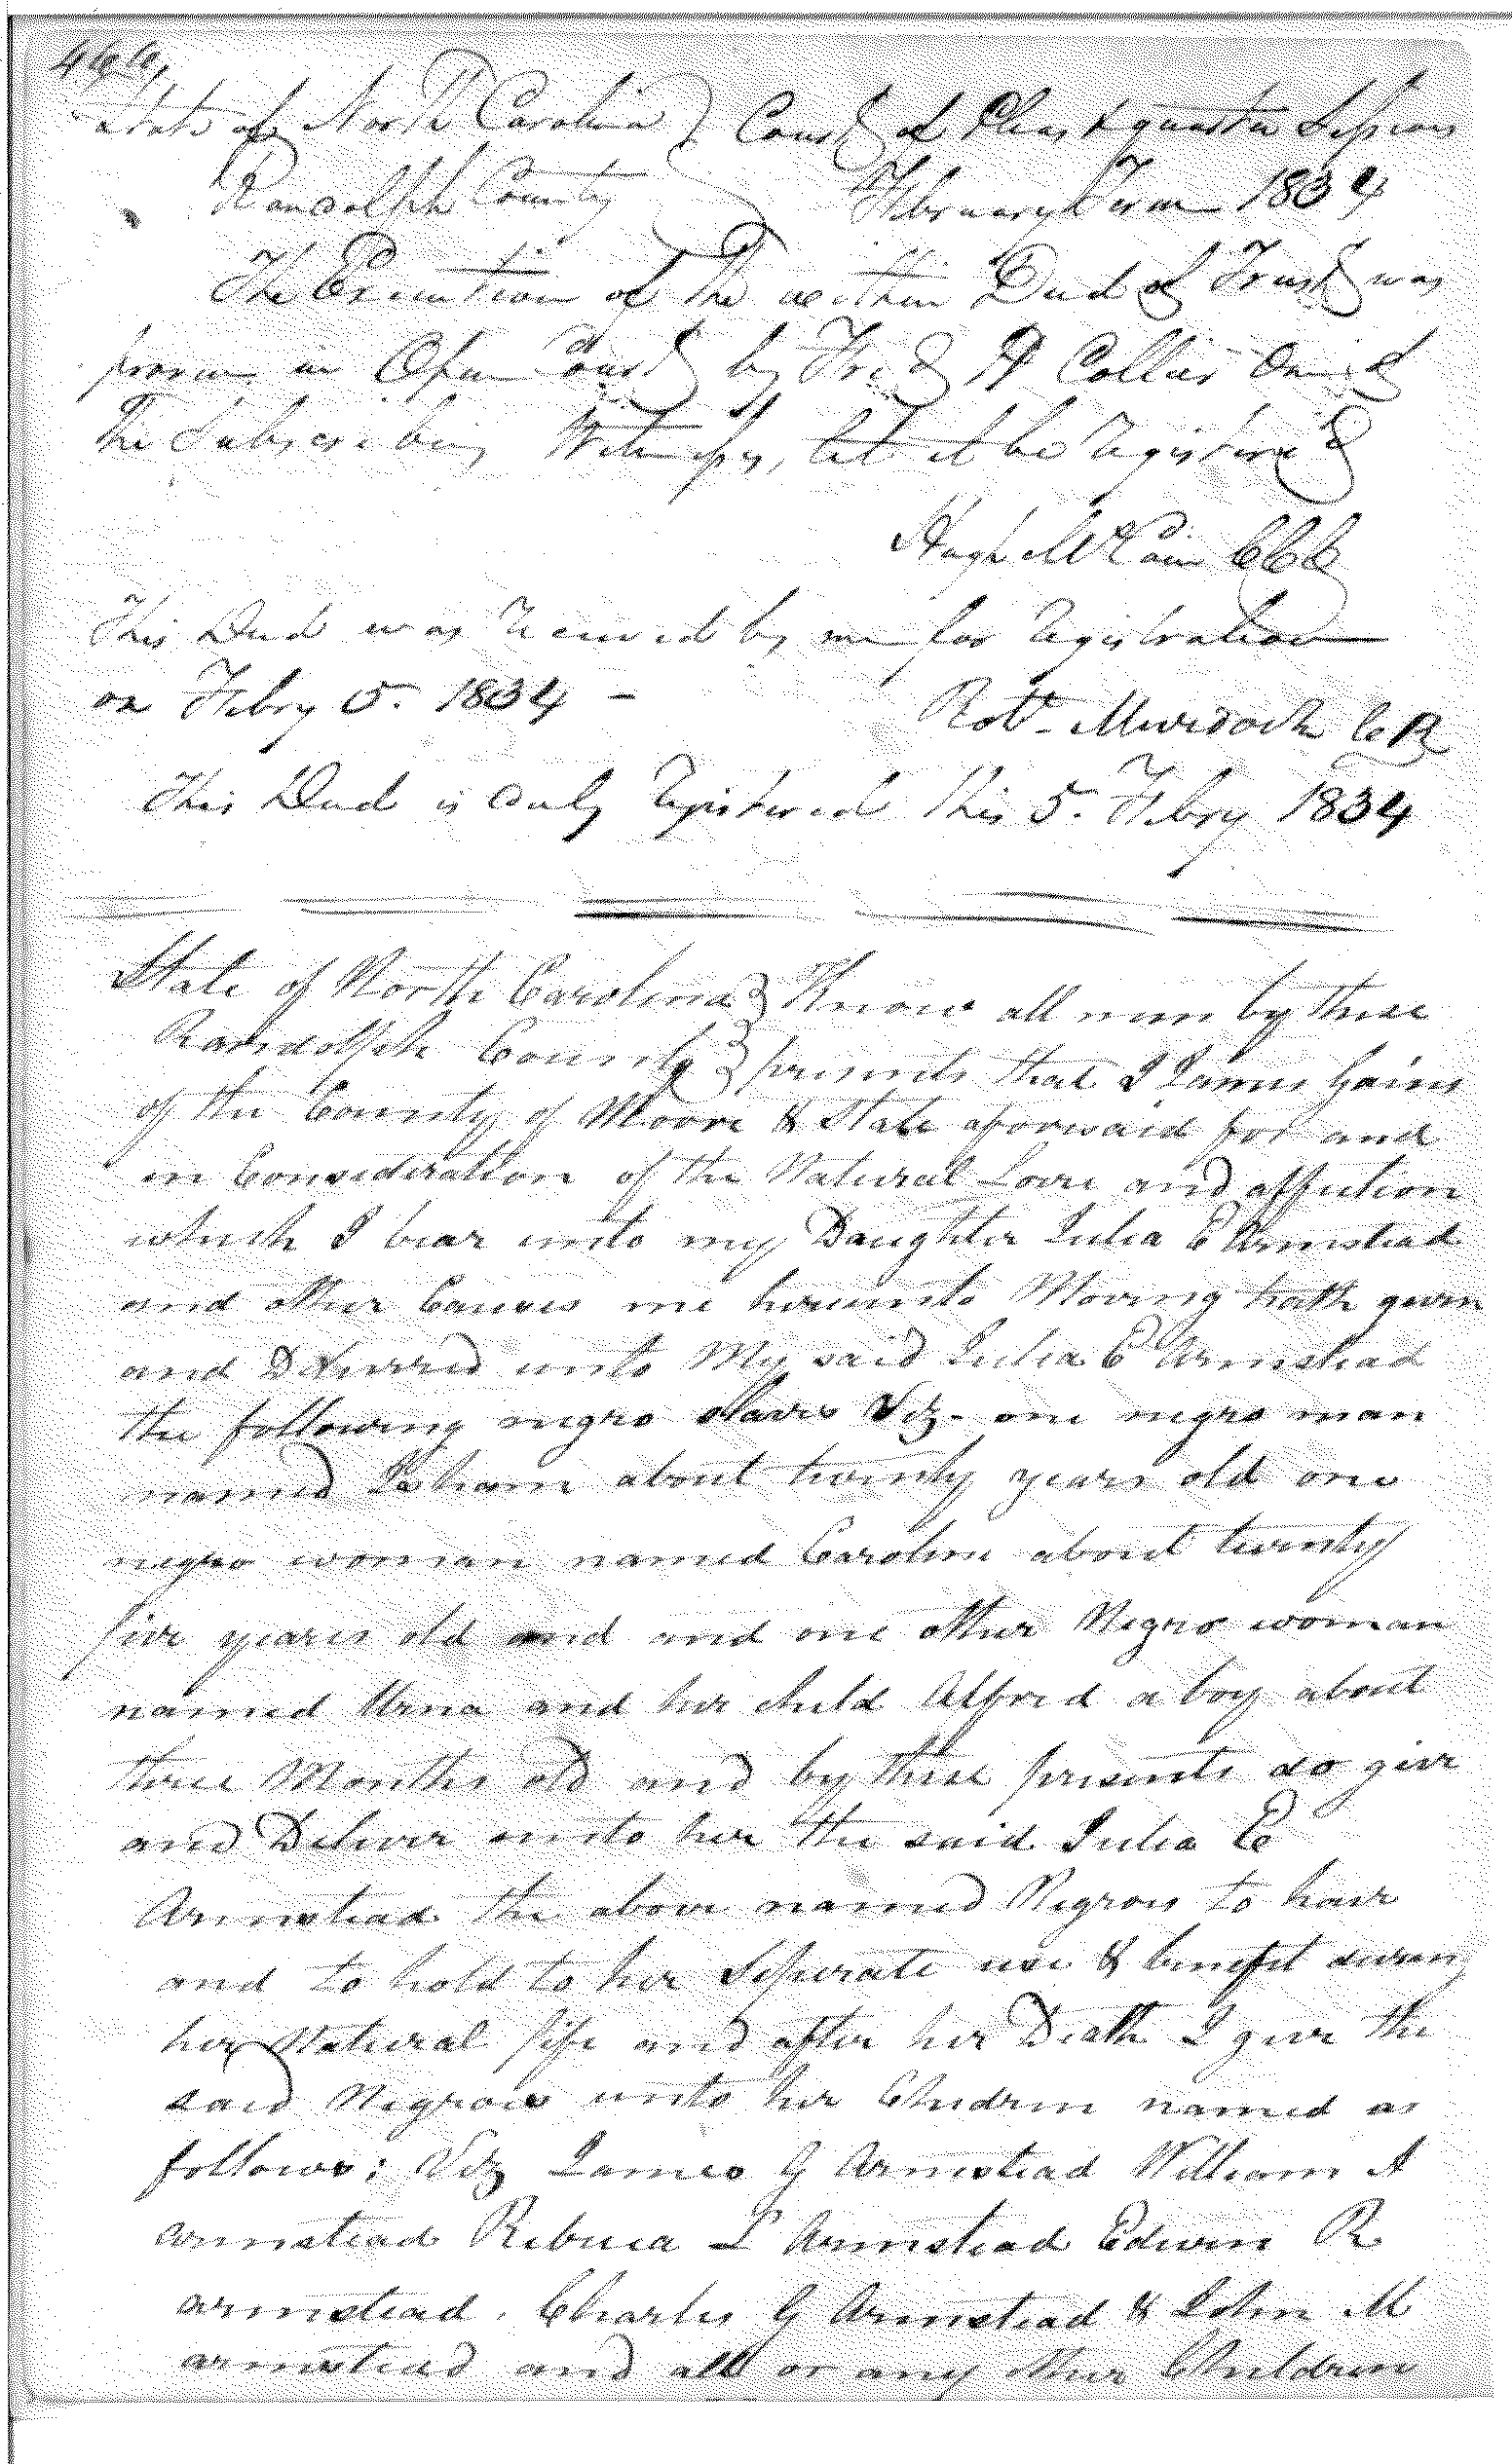 466,
State of North Carolina } Court of Pleas & quarter Sessions
Randolph County } February Term 1834
The Execution of the within Deed of Trust was
proven in Open Court by Fred H Collier One of
the Subscribing Witnesses, let it be registered
Hugh McCain CCC
This Deed was received by me for registration
on Febry 5. 1834 -
Robt. Murdock CR
This Deed is duly registered this 5. Febry 1834
State of North Carolina } Know all men by these
Randolph County } presents that I James Gaines
of the County of Moore & State aforesaid for and
in Consideration of the Natural Love and affection
which I bear unto my Daughter Julia E Armstead
and other Causes me hereunto Moving hath given
and Delivered unto My said Julia E Armstead
the following negro slaves Viz. one negro man
named about twenty years old one
negro woman named Caroline about twenty
five years old and and one other Negro woman
named and her child Alfred a boy about
three Months old and by these presents do give
and Deliver unto her the said Julia E
Armstead the above named Negroes to have
and to hold to her Seperate use & benefit during
her Natural life and after her Death I give the
said Negroes unto her Children named as
follows: Viz James G Armstead William A
armstead Rebecca L Armstead Edwin R
armstead. Charles G Armstead & John M
armstead and all or any other Children